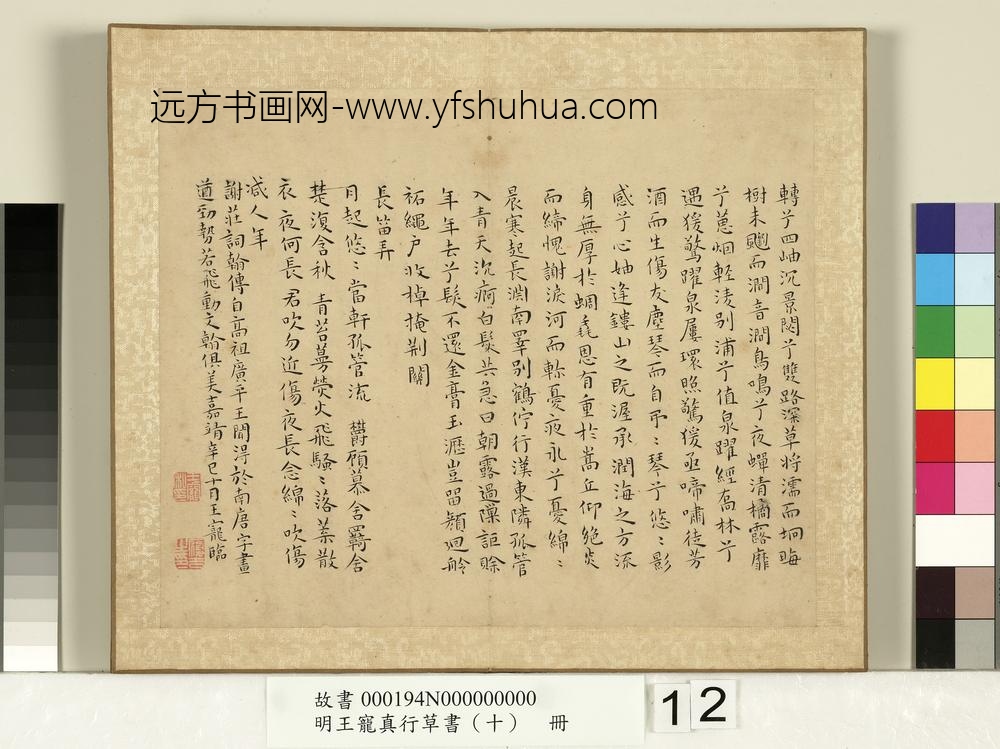 远方书画网-www.yfshuhua.com
轉兮四岫沉景閟兮雙路深草将濡而坰晦
樹未飂而澗音澗鳥鳴兮夜蟬清橘露靡
兮蕙烟輕淩别浦兮值泉躍經喬林兮
遇猨驚躍泉屢環照驚猨亟啼嘯徒芳
酒而生傷友塵琴而自弔弔琴兮悠悠影
感兮心妯逢鏤山之既渥承潤海之方流
身無厚於蜩毳恩有重於嵩丘仰絶炎
而締愧謝淚河而軫憂夜永兮憂綿綿
晨寒起長淵南睪别鶴佇行漢東隣孤管
入青天沉痾白髮共急日朝露過隟詎賒
年年去兮髮不還金膏玉瀝豈留顔迴舲
祏繩户收棹掩荆關
長笛弄
月起悠悠當軒孤管流 欝頋慕含羇含
楚復含秋 青苔蔓熒火飛騷騷落葉散
衣夜何長 君吹勿近傷夜長念綿綿吹傷
减人年
謝莊詞翰傳自高祖廣平王閒淂於南唐字畫
遒勁勢若飛動文翰俱美嘉靖辛巳十月王寵臨
故書 000194N000000000
明王寵真行草書（十） 冊
12